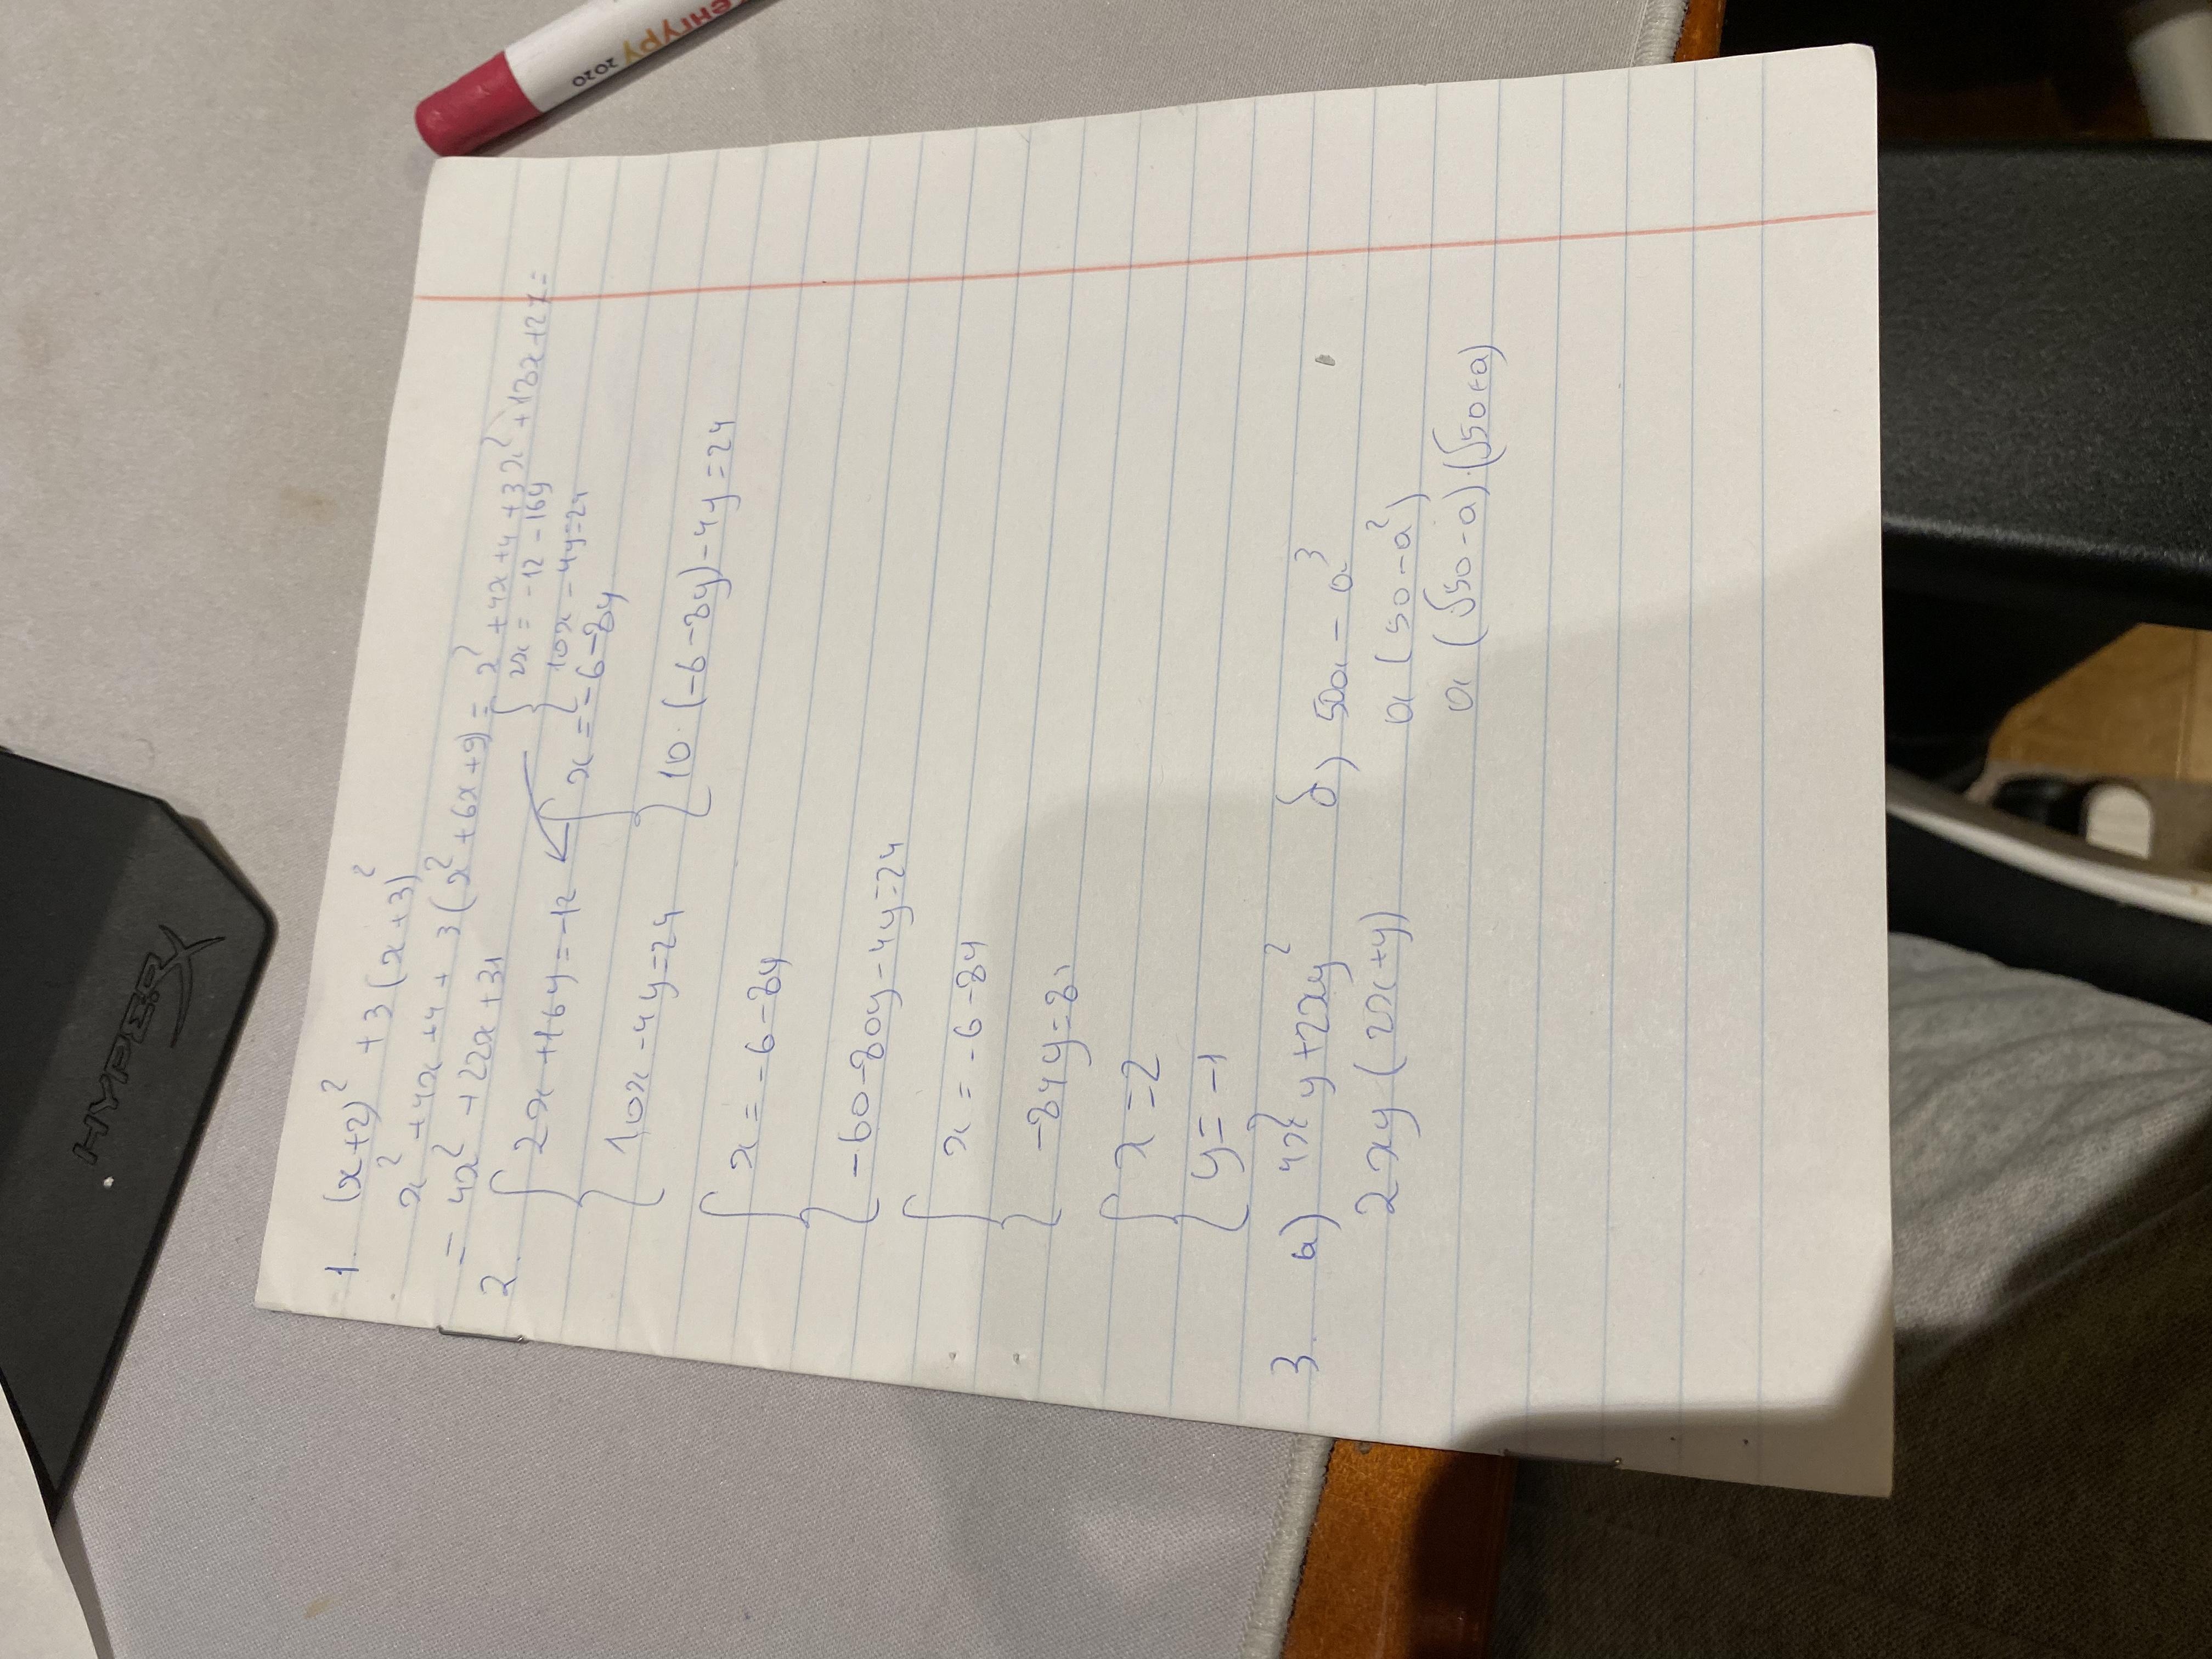 1. (x+2)² + 3(x+3)²
x² + 4x + 4 + 3(x² + 6x + 9) = x² + 4x + 4 + 3x² + 18x + 27 =
= 4x² + 22x + 31
2. { 2x + 16y = -12
10x - 4y = 24
{ 2x = -12 - 16y
10x - 4y = 24
{ x = -6 - 8y
10·(-6-8y) - 4y = 24
{ x = -6 - 8y
-60 - 80y - 4y = 24
{ x = -6 - 8y
-84y =
{ x = 2
y = -1
3. а) 4x²y + 2xy²
2xy(2x+y)
б) 50a - a³
a(50 - a²)
a(√50 - a)·(√50+a)
HYPERX
кенгуру 2020